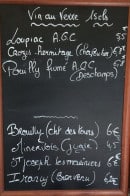 Vin au Verre 15cls
Loupiac A.O.C 5€
Crozes-Hermitage (Chapoutier) 6€
Pouilly fumé A.O.C
(Deschamps)
Brouilly (Cht des tours) 6€
Minervois 4€
St Joseph 6€
Irancy 6€